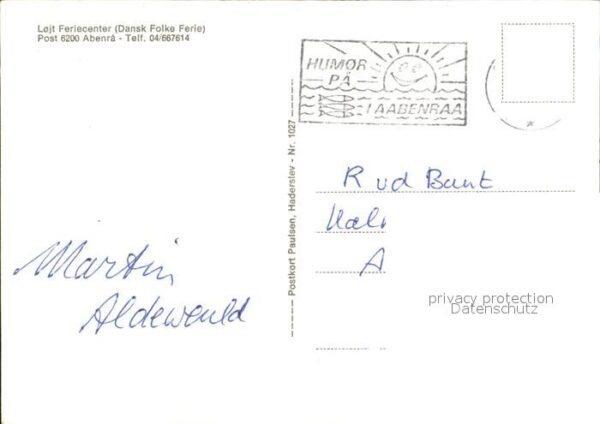 Løjt Feriecenter (Dansk Folke Ferie)
Post 6200 Abenrå - Telf. 04/667614
HUMOR
PÅ
I AABENRAA
Postkort Paulsen, Haderslev - Nr. 1027
R ud Bunt
A
Martin
Aldewenld
privacy protection
Datenschutz